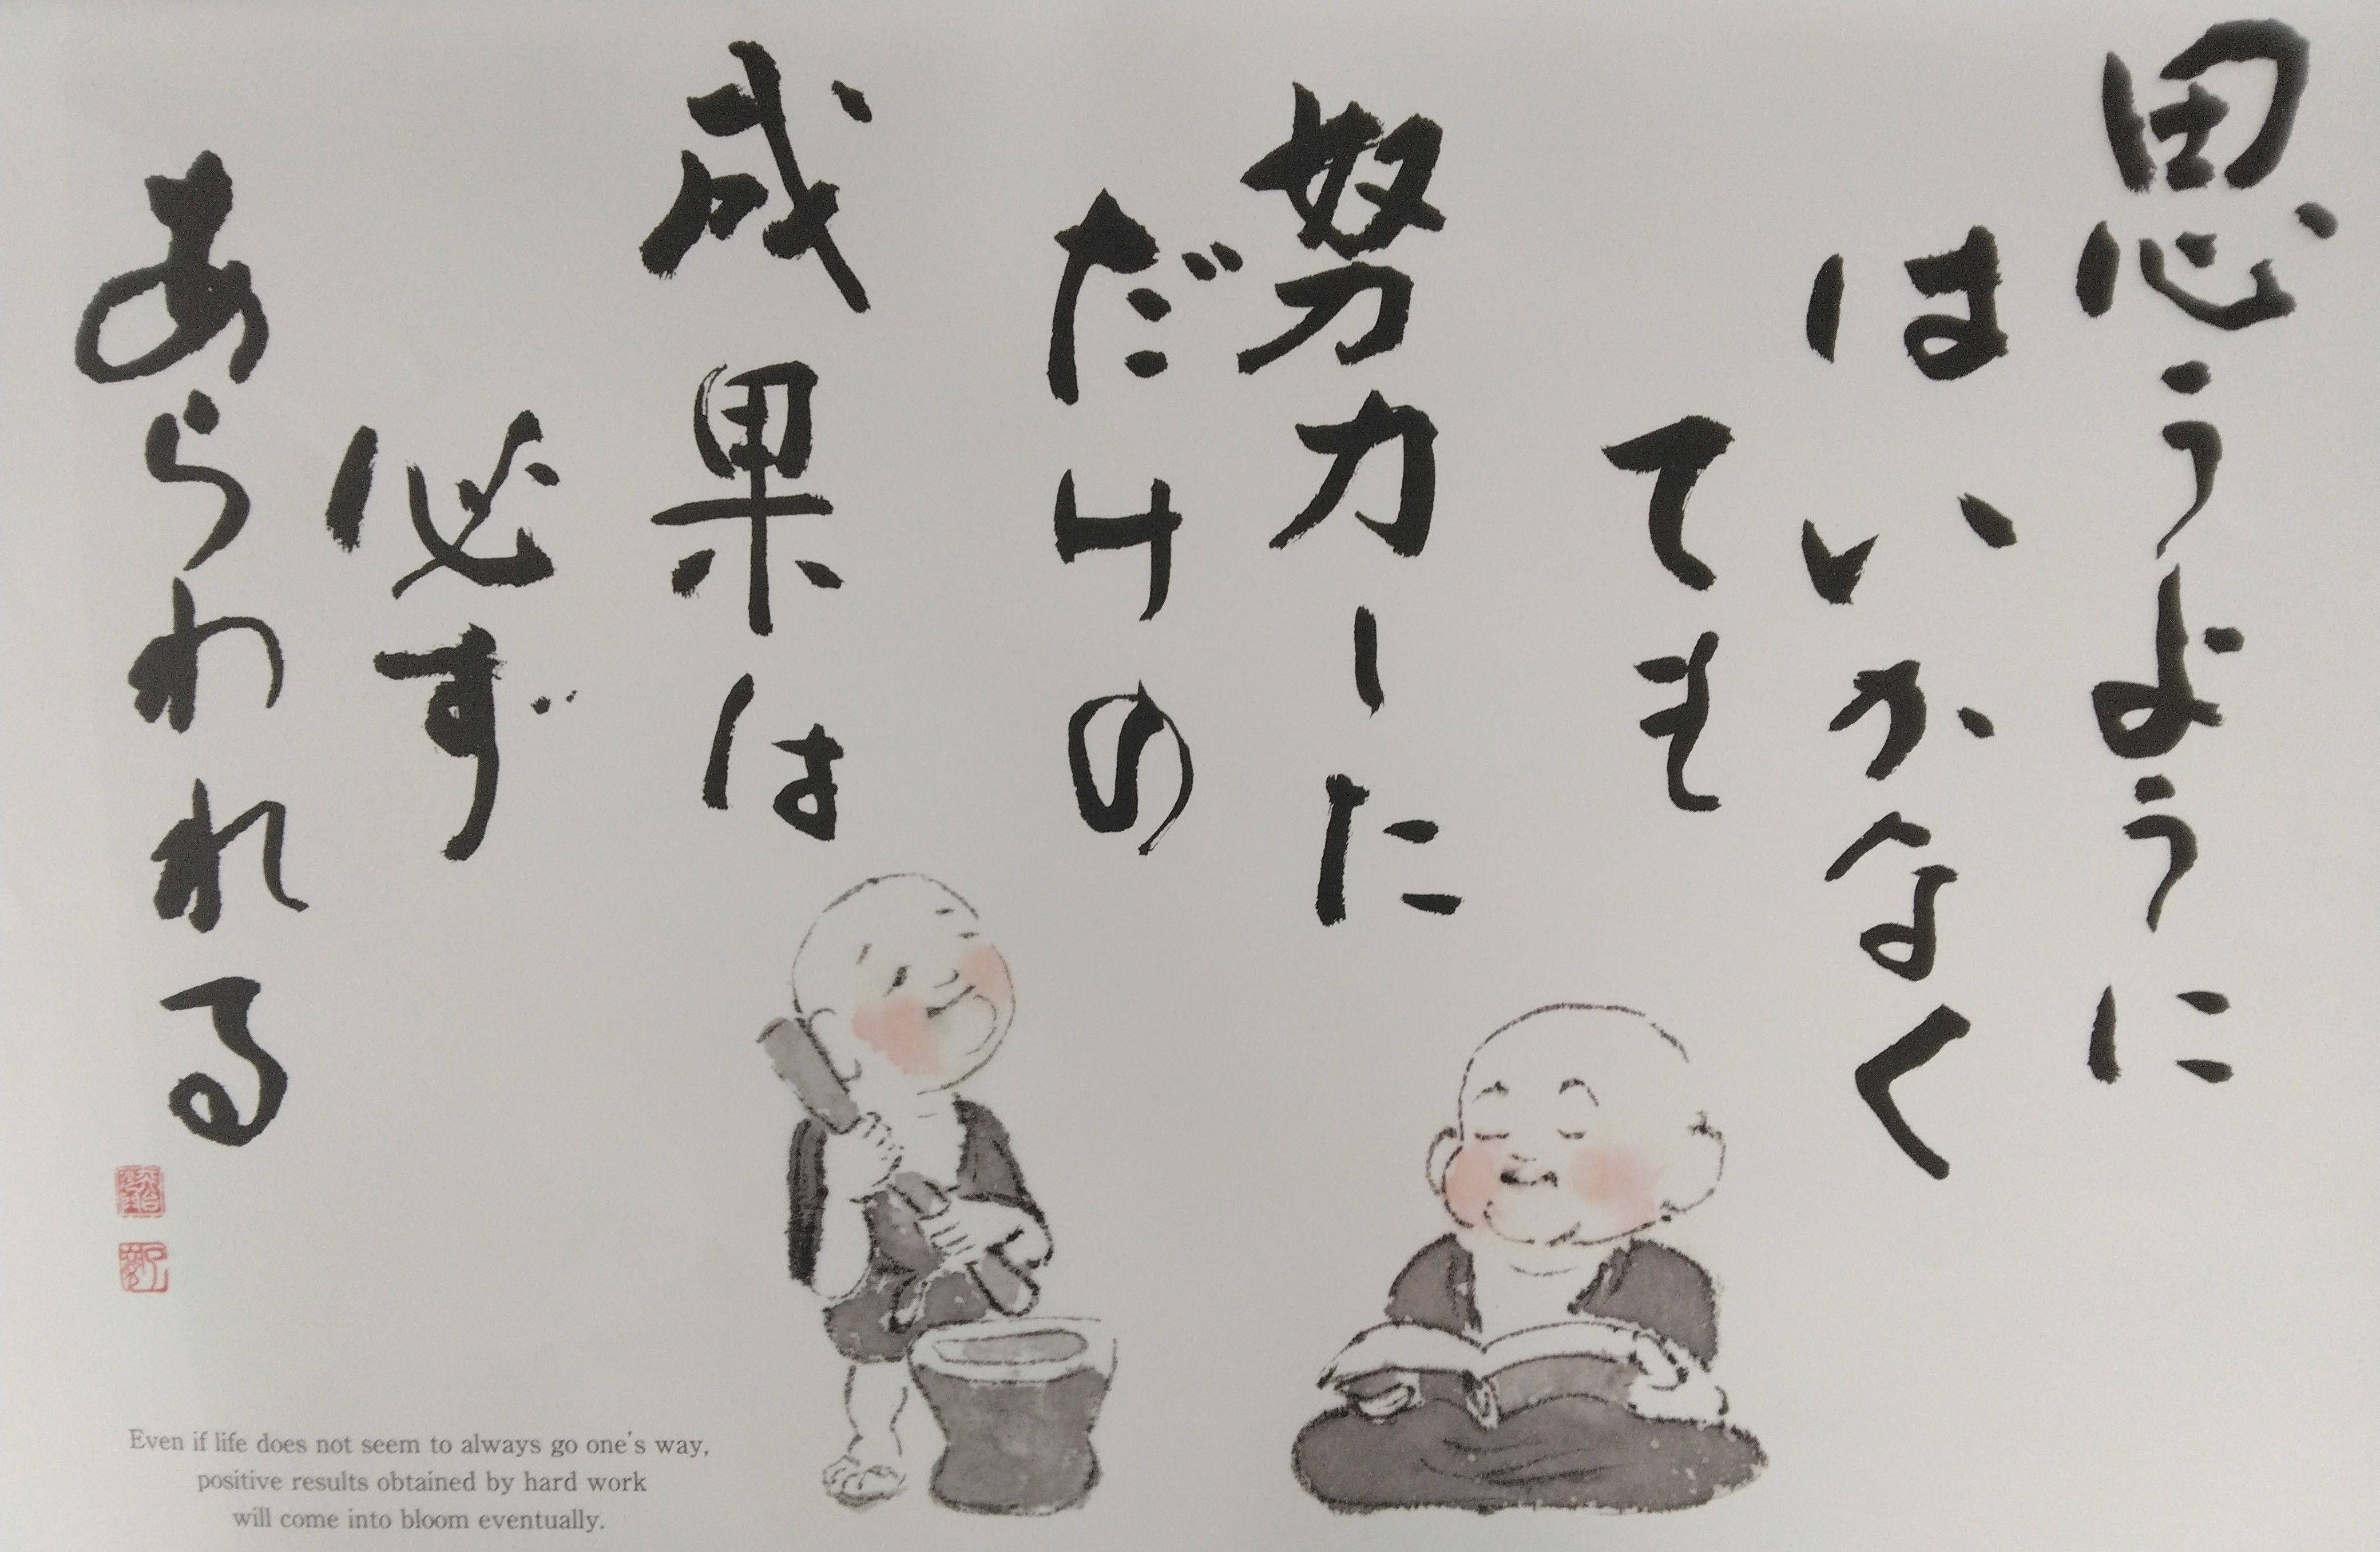 思うように
はいかなく
ても
努力した
だけの
成果は
必ず
あらわれる
Even if life does not seem to always go one's way,
positive results obtained by hard work
will come into bloom eventually.